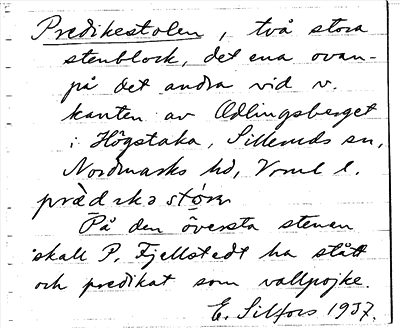 Predikestolen, två stora
stenblock, det ena ovan-
på det andra vid v.
kanten av Ödlingsberget
i Högstaka, Silleruds sn,
Nordmarks hd, Vrml l.
prædikəstørn
På den översta stenen
skall P. Fjellstedt ha stått
och predikat som vallpojke.
E. Silfors 1937.